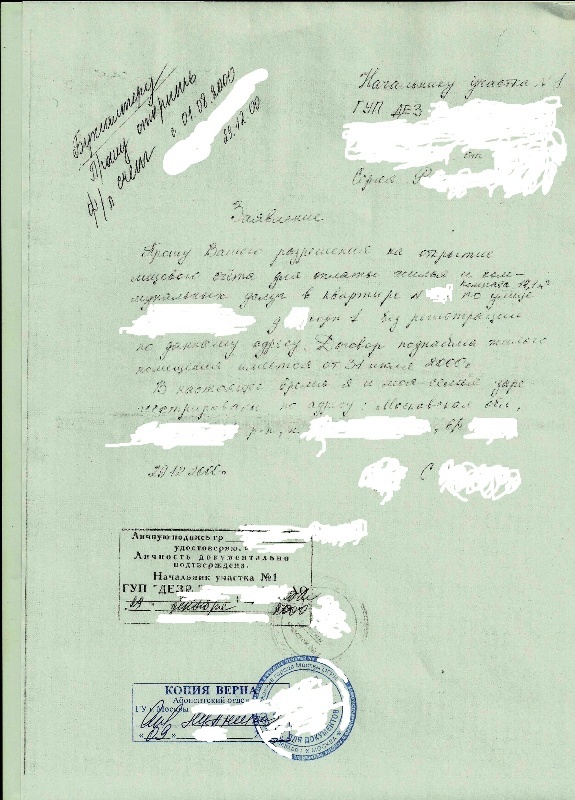 Бухгалтеру
Прошу открыть
ф/л счет с 01.08.2000
29.12.00
Начальнику участка №1
ГУП ДЕЗ
от
Заявление
Прошу Вашего разрешения на открытие
лицевого счёта для оплаты жилья и ком-
комната 19,1 м²
мунальных услуг в квартире № по улице
д корп 1 без регистрации
по данному адресу. Договор поднайма жилого
помещения имеется от 31 июля 2000г.
В настоящее время я и моя семья заре-
гистрированы по адресу: Московская обл,
р-н, п.
29.12.2000г.
С
Личную подпись гр
удостоверяю,
Личность документально
подтверждена.
Начальник участка №1
ГУП "ДЕЗ
29 декабря 2000
КОПИЯ ВЕРНА
ГУ г. Москвы
ДЛЯ ДОКУМЕНТОВ